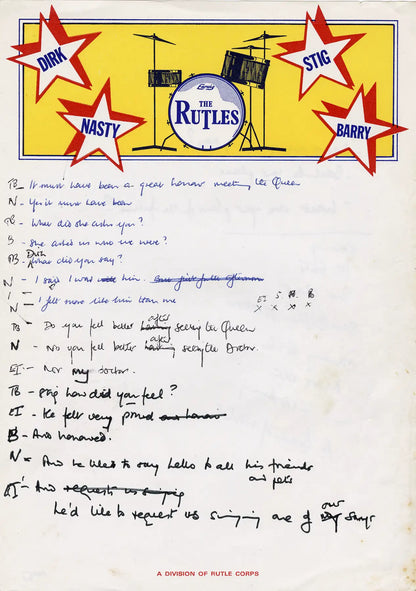 DIRK
STIG
NASTY
BARRY
Ludwig
THE
RUTLES
B - It must have been a great honour meeting the Queen
N - Yes it must have been
B - What did she ask you?
B - She asked us who we were?
B - Dirk what did you say?
N - I says I was him.
- I felt more like him than me
EI S N B
x x x x
B - Do you feel better after seeing the Queen
N - No you feel better after seeing the Doctor.
EI - Not my doctor.
B - Stig how did you feel?
EI - He felt very proud
B - And honoured.
N - And he'd like to say hello to all his friends
and pets
EI - And
he'd like to request us singing one of our songs
A DIVISION OF RUTLE CORPS